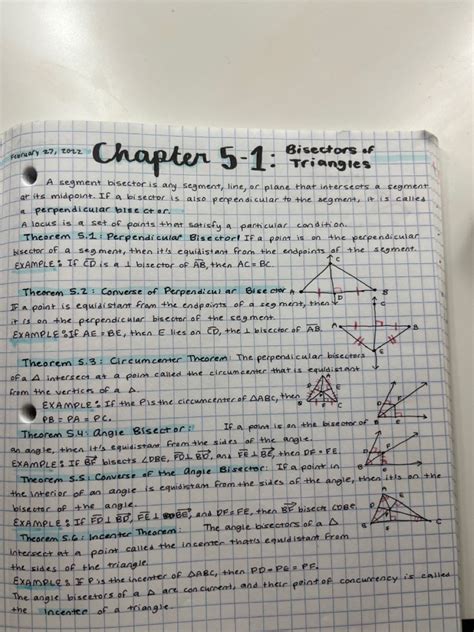 February 27, 2022 Chapter 5-1: Bisectors of Triangles
A segment bisector is any segment, line, or plane that intersects a segment
at its midpoint. If a bisector is also perpendicular to the segment, it is called
a perpendicular bisector.
A locus is a set of points that satisfy a particular condition.
Theorem 5.1: Perpendicular Bisector: If a point is on the perpendicular
bisector of a segment, then it's equidistant from the endpoints of the segment.
EXAMPLE: If CD is a ⊥ bisector of AB, then AC = BC.
Theorem 5.2: Converse of Perpendicular Bisector
If a point is equidistant from the endpoints of a segment, then
it is on the perpendicular bisector of the segment.
EXAMPLE: If AE = BE, then E lies on CD, the ⊥ bisector of AB.
Theorem 5.3: Circumcenter Theorem: The perpendicular bisectors
of a △ intersect at a point called the circumcenter that is equidistant
from the vertices of a △.
EXAMPLE: If the P is the circumcenter of △ABC, then
PB = PA = PC.
Theorem 5.4: Angle Bisector: If a point is on the bisector of
an angle, then it's equidistant from the sides of the angle.
EXAMPLE: If BF bisects ∠DBE, FD ⊥ BD, and FE ⊥ BE, then DF = FE.
Theorem 5.5: Converse of the Angle Bisector: If a point in
the interior of an angle is equidistant from the sides of the angle, then it's on the
bisector of the angle.
EXAMPLE: If FD ⊥ BD, FE ⊥ BE, and DF = FE, then BF bisect ∠DBE
Theorem 5.6: Incenter Theorem: The angle bisectors of a △
intersect at a point called the incenter that's equidistant from
the sides of the triangle.
EXAMPLE: If P is the incenter of △ABC, then PD = PE = PF.
The angle bisectors of a △ are concurrent, and their point of concurrency is called
the incenter of a triangle.